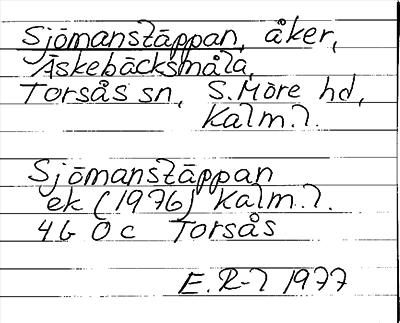 Sjömanstäppan, åker,
Askebäcksmåla,
Torsås sn, S. Möre hd,
Kalm. l.
Sjömanstäppan
ek (1976) Kalm. l.
4G 0c Torsås
E. R-l 1977